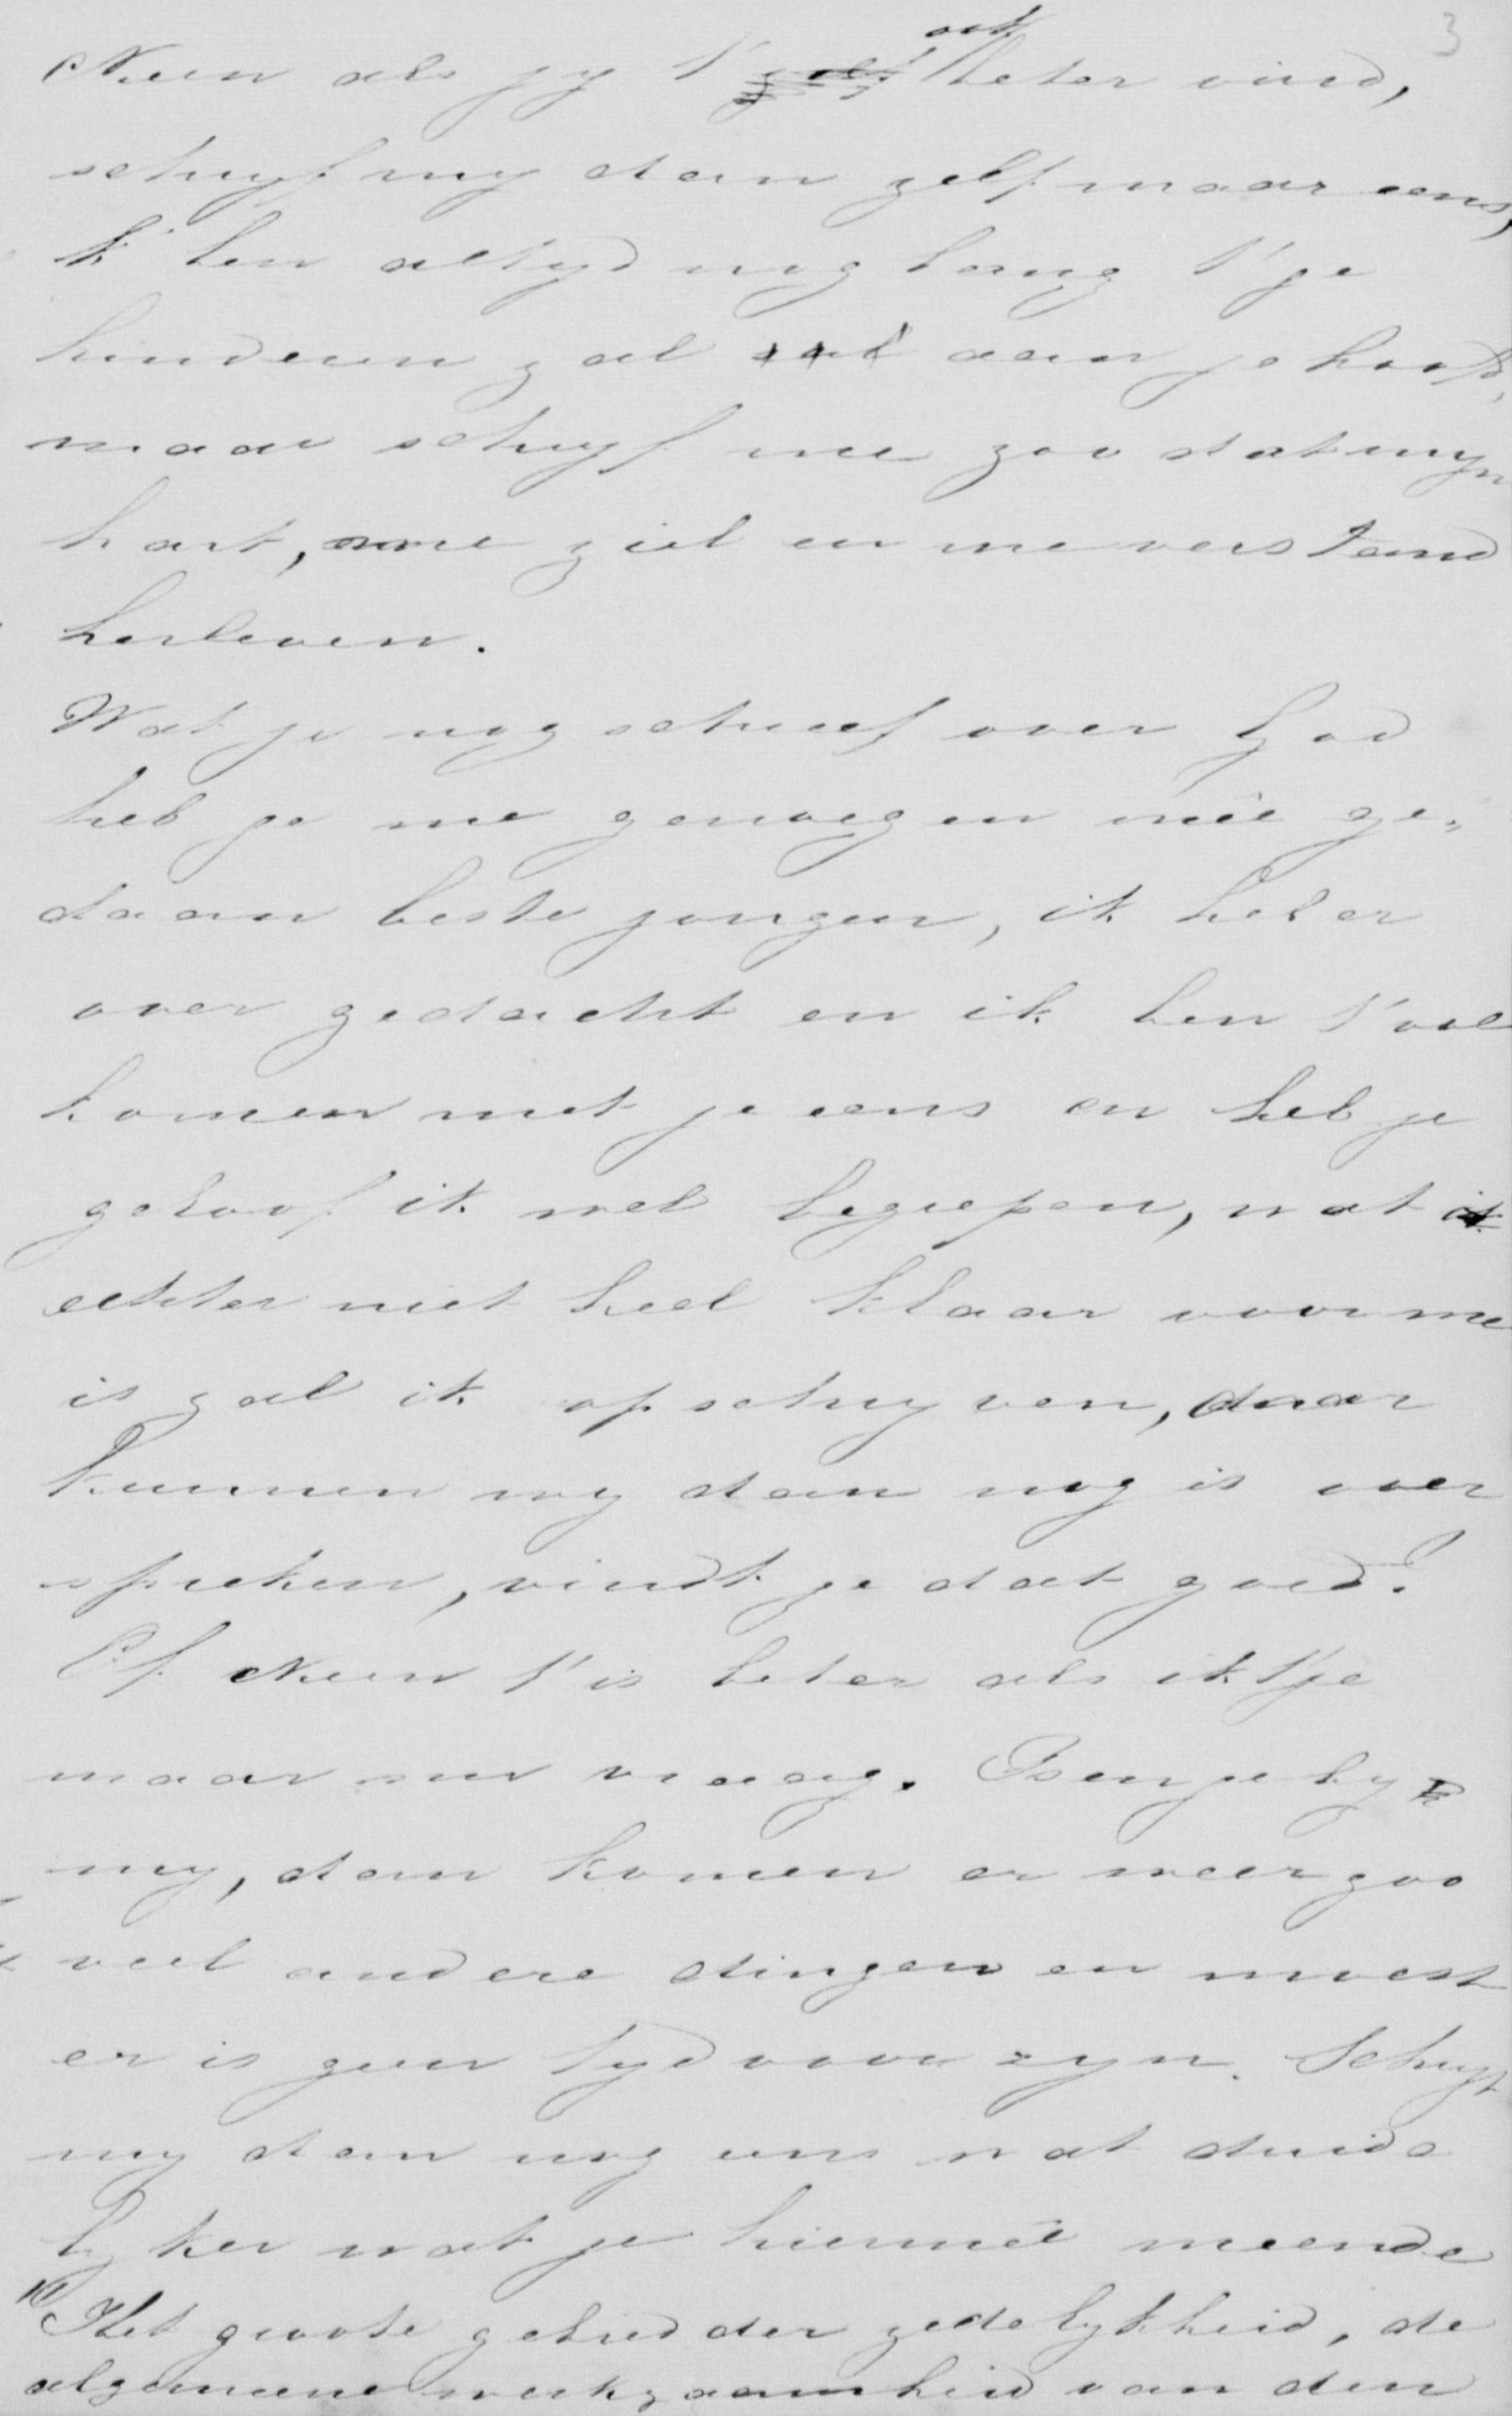 3
Neen als jy 't ook beter vind,
schryf my dan zelf maar eens,
k' ben altyd nog bang 't je
hinderen zal aan je hoofd,
maar schryf me zoo dat myn
hart, me ziel en me verstand
herleven.
Wat je nog schreef over God
heb je me genoegen meê ge„
daan beste jongen, ik heb er
over gedacht en ik ben 't vol
komen met je eens en heb je
geloof ik wel begrepen, wat
echter niet heel klaar voor me
is zal ik opschryven, daar
kunnen wy dan nog is over
spreken, vindt je dat goed?
Of Neen 't is beter als ik 't je
maar nu vraag. Ben je by
my, dan komen er weer zoo
veel andere dingen en moest
er is geen tyd voor zyn. Schryf
my dan nog eens wat duide
lyker wat je hiermeê meende
"Het groote gebied der zedelykheid, de
algemeene werkzaamheid van den